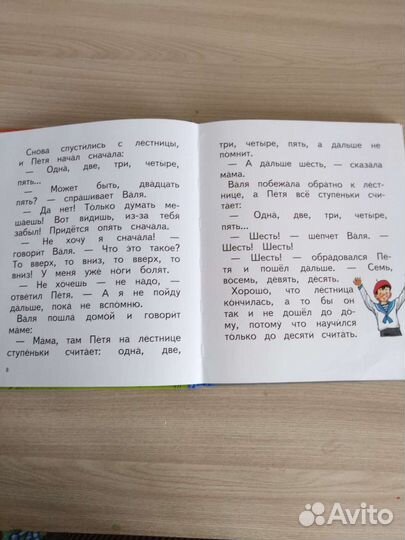 Снова спустились с лестницы,
и Петя начал сначала:
— Одна, две, три, четыре,
пять...
— Может быть, двадцать
пять? — спрашивает Валя.
— Да нет! Только думать ме-
шаешь! Вот видишь, из-за тебя
забыл! Придётся опять сначала.
— Не хочу я сначала! —
говорит Валя. — Что это такое?
То вверх, то вниз, то вверх, то
вниз! У меня уже ноги болят.
— Не хочешь — не надо, —
ответил Петя. — А я не пойду
дальше, пока не вспомню.
Валя пошла домой и говорит
маме:
— Мама, там Петя на лестнице
ступеньки считает: одна, две,
8
три, четыре, пять, а дальше не
помнит.
— А дальше шесть, — сказала
мама.
Валя побежала обратно к лест-
нице, а Петя всё ступеньки счи-
тает:
— Одна, две, три, четыре,
пять...
— Шесть! — шепчет Валя. —
Шесть! Шесть!
— Шесть! — обрадовался Пе-
тя и пошёл дальше. — Семь,
восемь, девять, десять.
Хорошо, что лестница
кончилась, а то бы он
так и не дошёл до до-
му, потому что научился
только до десяти считать.
Avito